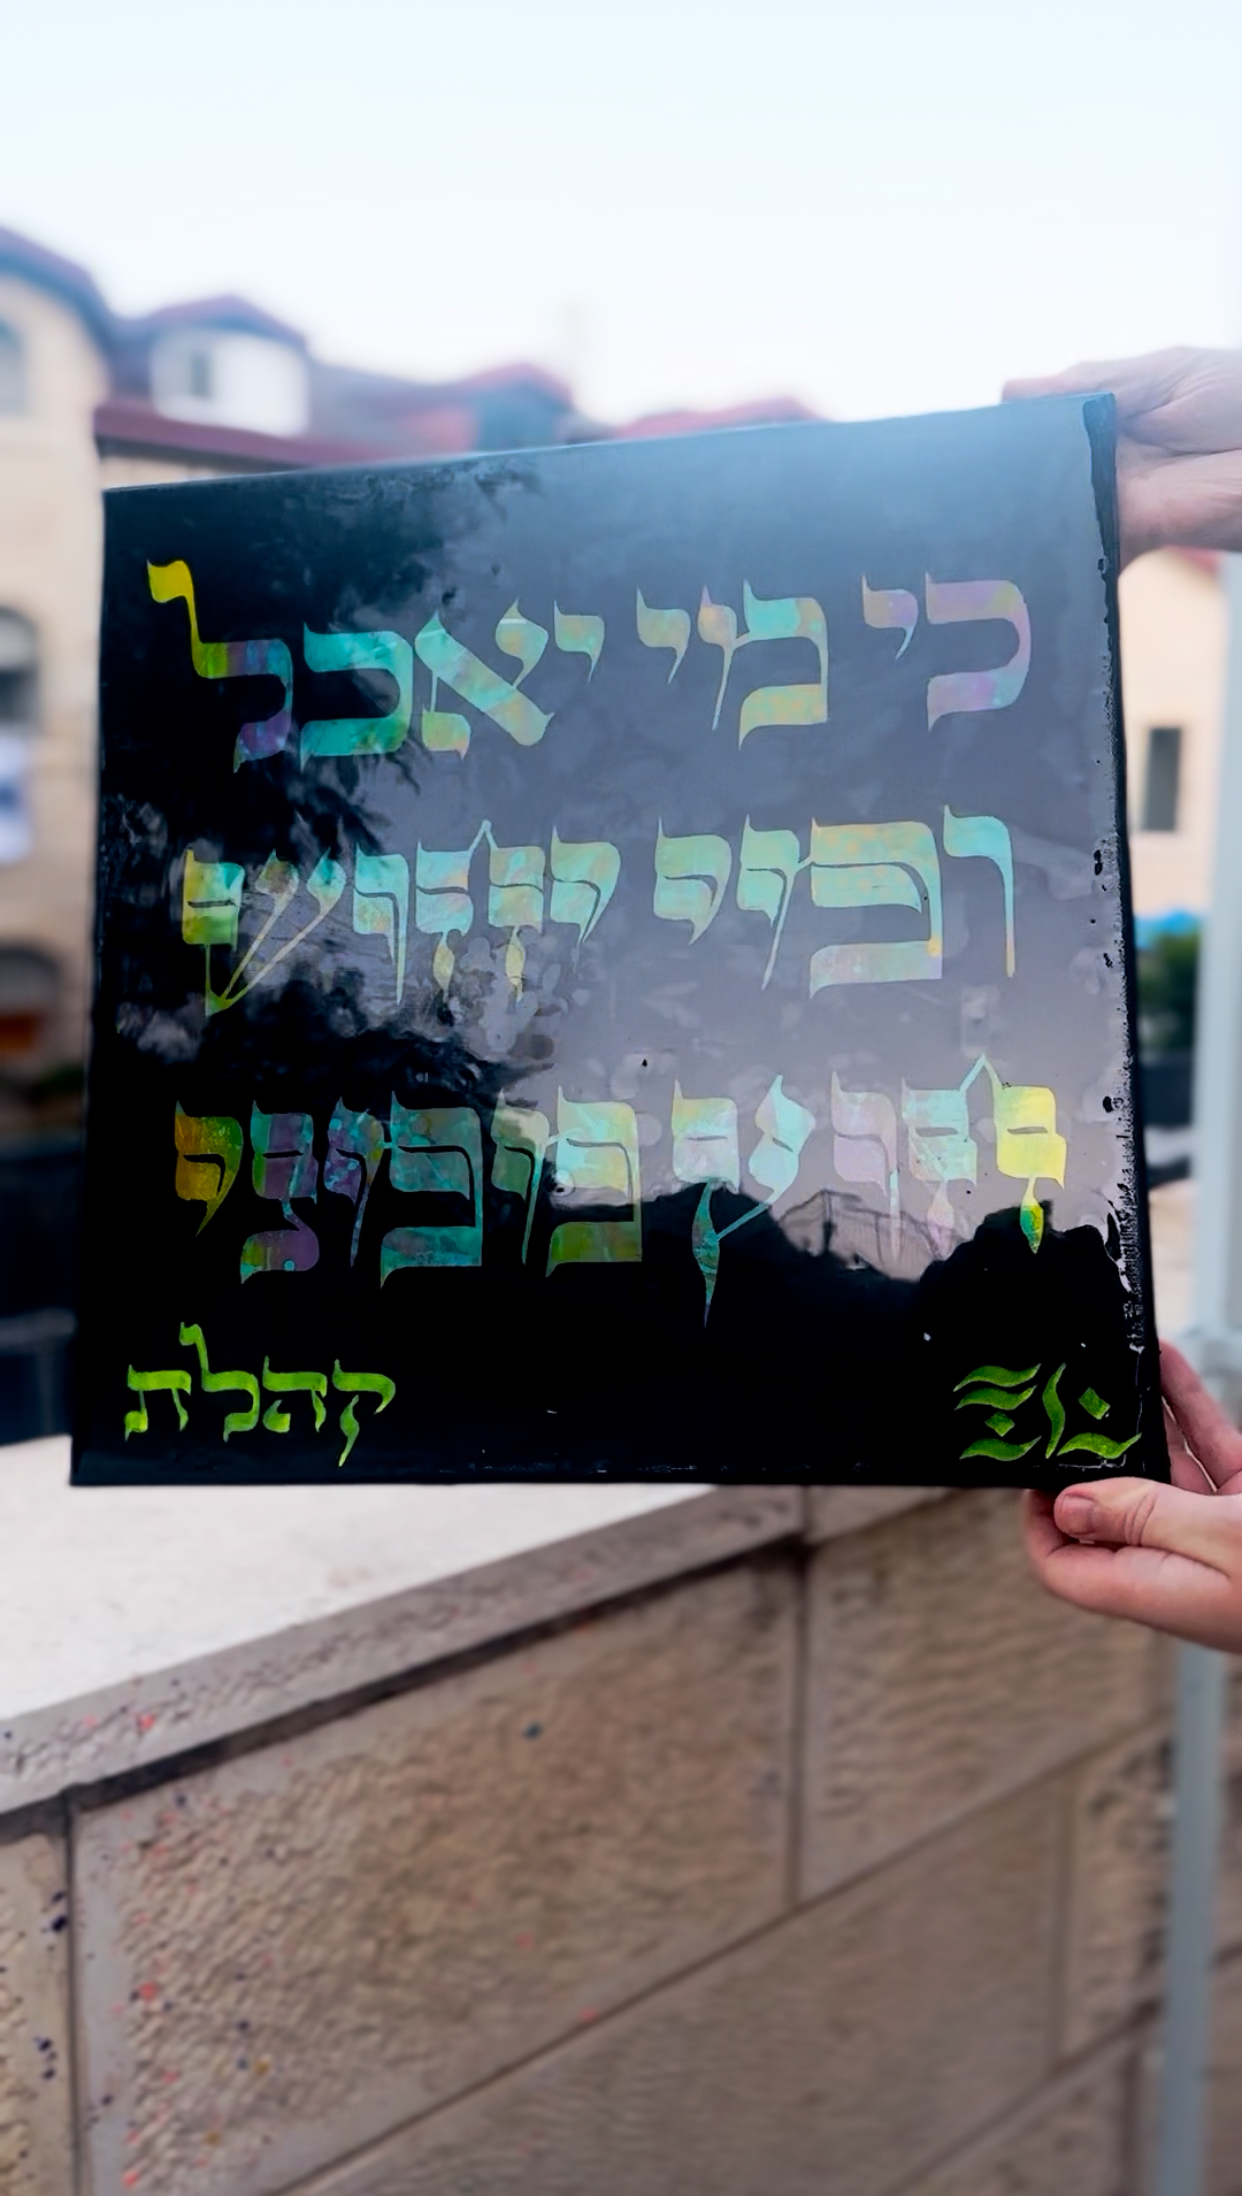 כי מי יאכל
ומי יחוש
חוץ ממני
קהלת